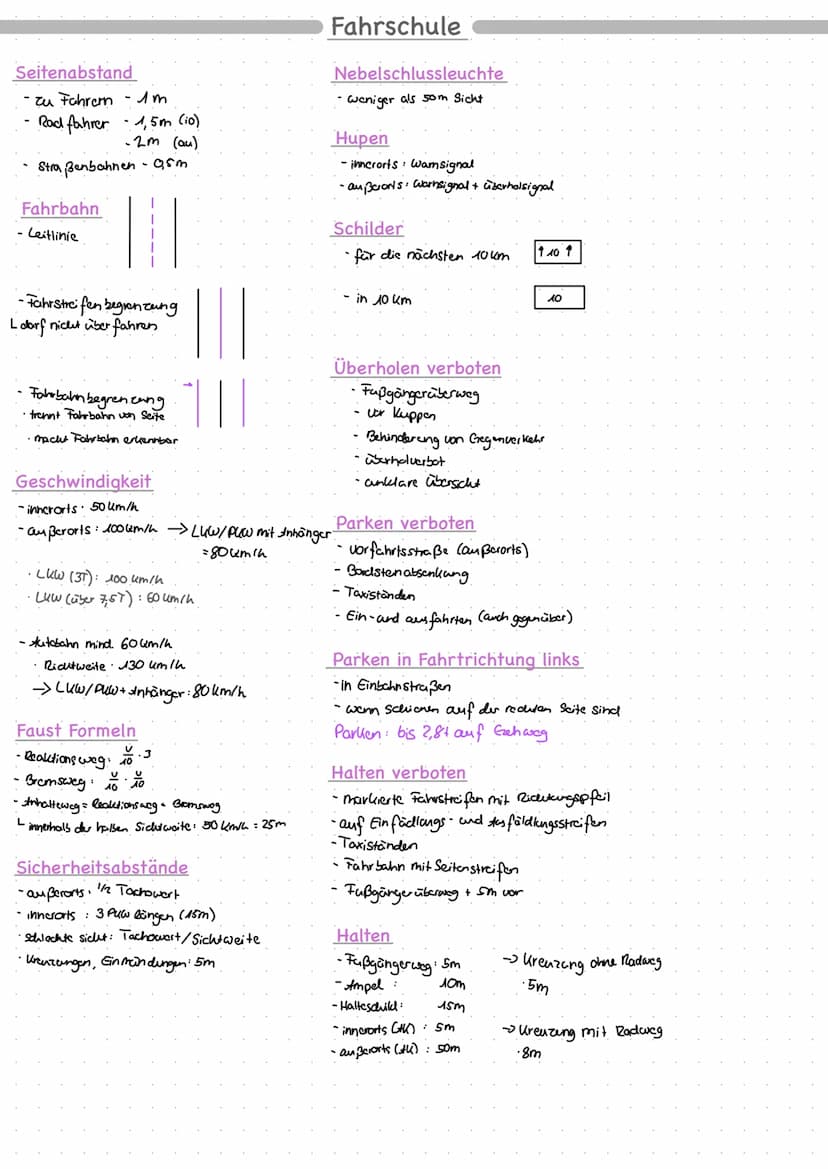 Fahrschule
Seitenabstand
- zu Fahrern - 1m
- Radfahrer - 1,5m (io)
- 2m (au)
- Straßenbahnen - 0,5m
Fahrbahn
- Leitlinie
- Fahrstreifenbegrenzung
↳ darf nicht überfahren
- Fahrbahnbegrenzung
· trennt Fahrbahn von Seite
· macht Fahrbahn erkennbar
Geschwindigkeit
- innerorts · 50 km/h
- außerorts : 100 km/h → LKW/PKW mit Anhänger
= 80 km/h
· LKW (3T) : 100 km/h
· LKW (über 7,5T) : 60 km/h
- Autobahn mind. 60 km/h
· Richtweite · 130 km/h
→ LKW/PKW + Anhänger : 80 km/h
Faust Formeln
- Reaktionsweg: v/10 · 3
- Bremsweg : v/10 · v/10
- Anhalteweg = Reaktionsweg + Bremsweg
↳ innerhalb der halben Sichtweite : 50 km/h = 25m
Sicherheitsabstände
- außerorts : 1/2 Tachowert
- innerorts : 3 PKW längen (15m)
· schlechte sicht : Tachowert/Sichtweite
· Kreuzungen, Einmündungen : 5m
Nebelschlussleuchte
- weniger als 50m Sicht
Hupen
- innerorts : Warnsignal
- außerorts : Warnsignal + überholsignal
Schilder
- für die nächsten 10 km ↑ 10 ↑
- in 10 km 10
Überholen verboten
- Fußgängerüberweg
- vor Kuppen
- Behinderung von Gegenverkehr
- überholverbot
- unklare Übersicht
Parken verboten
- vorfahrtsstraße (außerorts)
- Bordsteinabsenkung
- Taxiständen
- Ein- und ausfahrten (auch gegenüber)
Parken in Fahrtrichtung links
- in Einbahnstraßen
- wenn schienen auf der rechten Seite sind
Parken : bis 2,8t auf Gehweg
Halten verboten
- markierte Fahrstreifen mit Richtungspfeil
- auf Einfädlungs- und Ausfädlungsstreifen
- Taxiständen
- Fahrbahn mit Seitenstreifen
- Fußgängerüberweg + 5m vor
Halten
- Fußgängerweg : 5m
- Ampel : 10m
- Halteschild : 15m
- innerorts (AK) : 5m
- außerorts (AK) : 50m
→ Kreuzung ohne Radweg
· 5m
→ Kreuzung mit Radweg
· 8m